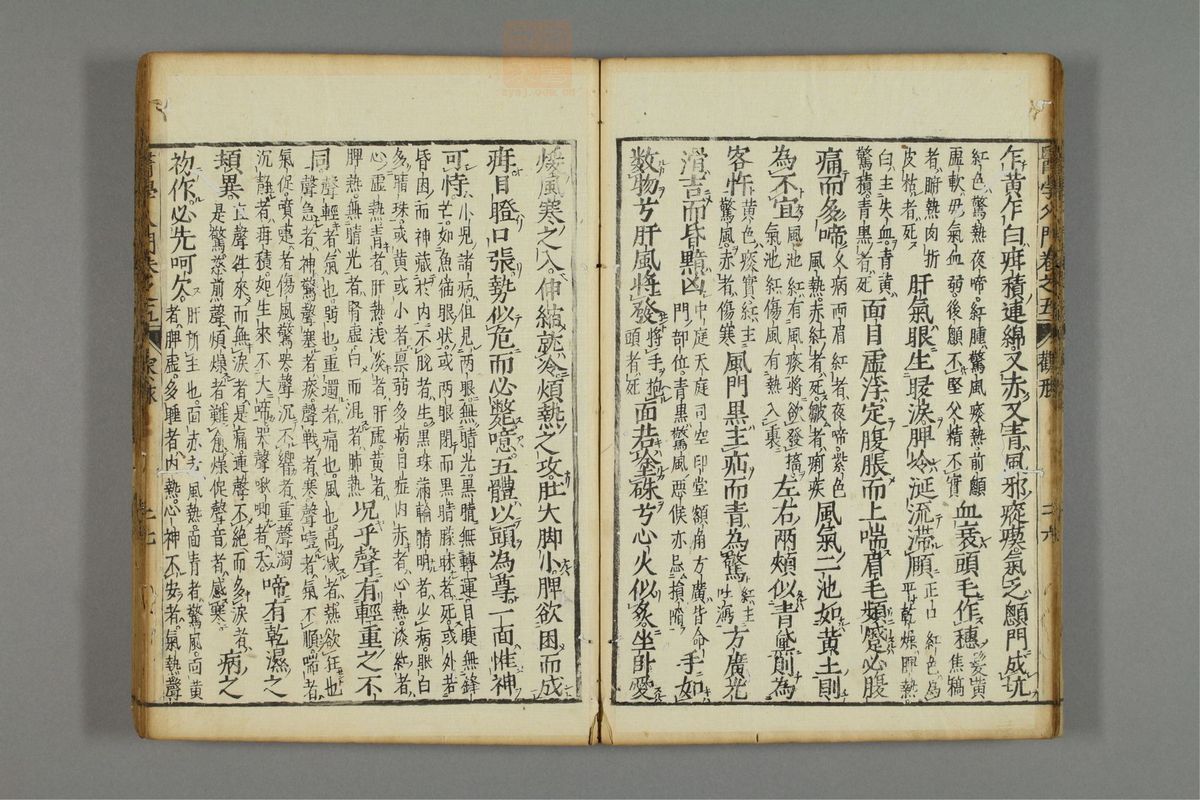 乍黄乍白疳積連綿又赤又青風邪瘈瘲氣乏顖門成坑
紅色驚熱夜啼紅腫驚風痰熱前顖
虛軟母氣血弱後顖不堅父精不實
血衰頭毛作穗
髮黄
焦稿
者腑熱肉折
皮枯者死
肝氣眼生眵淚脾冷涎流滯頤
正口紅色為
平乾燥脾熱
白主失血青黄
驚積青黑者死
面目虛浮定腹脹而上喘眉毛頻蹙必腹
痛而多啼
久病兩眉紅者夜啼紫色
風熱赤紅者死皺者痢疾
風氣二池如黄土則
為不宜
風池紅有風痰將欲發搐
氣池紅傷風有熱入裏
左右兩頰似青黛前為
客忤
黄色痰實紅主
驚風赤者傷寒
風門黑主疝而青為驚
紅主
吐瀉
方廣光
滑吉而昏黯凶
中庭天庭司空印堂額角方廣皆命
門部位青黑驚風惡候亦忌損陷
手如
数物兮肝風將發
將手抱
頭者死
面若塗硃兮心火似多坐卧愛
煖風寒之入伸縮就冷煩熱之攻肚大脚小脾欲困而成
疳目瞪口張勢似危而必斃噫五體以頭為尊一面惟神
可恃
小兒諸病但見兩眼無晴光黑睛無轉運目睫無鋒
芒如魚猫眼狀或兩眼閉而黑睛朦昧者死或外若
昏困而神藏於内不脫者生黑珠滿輪睛明者少病眼白
多睛珠或黄或小者禀弱多病目症内赤者心熱淡紅者
心虛熱青者肝熱浅淡者肝虛黄者
脾熱無睛光者腎虛白而混者肺熱
况乎聲有輕重之不
同
聲輕者氣也弱也重濁者痛也風也高減者熱欲狂也
聲急者神驚聲塞者痰聲戦者寒聲噎者氣不順喘者
氣促噴嚏者傷風驚哭聲沉不響者重聲濁
沉静者疳積如生來不大啼哭聲啾唧者夭
啼有乾濕之
頻異
宜聲往來而無淚者是痛連聲不絕而多淚者
是驚慈煎聲煩燥者難愈燥促聲音者感寒
病之
初作必先呵欠
肝所主也面赤者風熱面青者驚風面黄
者脾虛多睡者内熱心神不安者氣熱聲